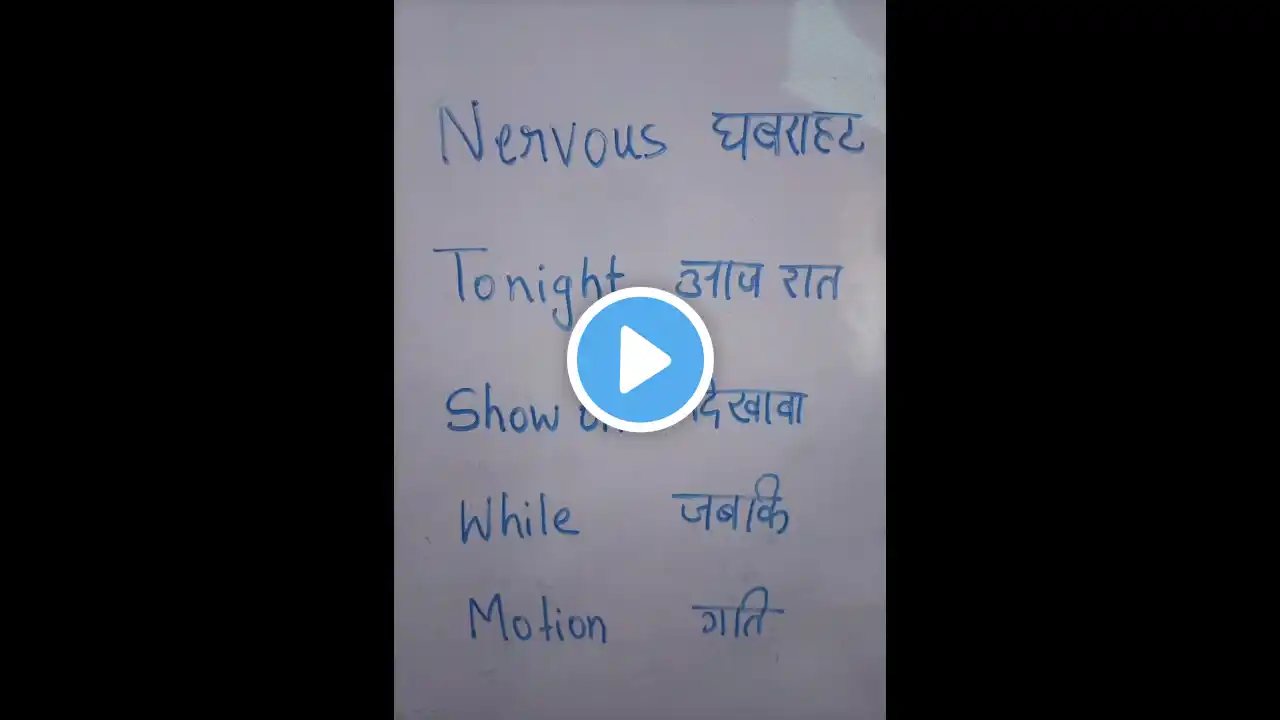 Nervous घबराहट
Tonight आज रात
Show दिखावा
While जबकि
Motion गति